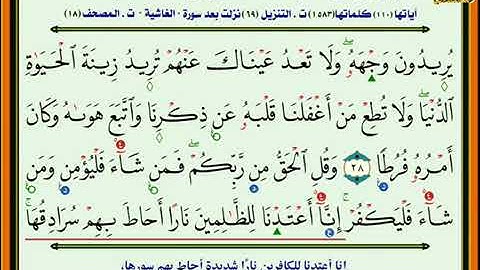 آياتها (١١٠) كلماتها (١٥٨٣) ت . التنزيل (٦٩) نزلت بعد سورة - الغاشية - ت . المصحف (١٨)
يُرِيدُونَ وَجْهَهُۥ ۖ وَلَا تَعْدُ عَيْنَاكَ عَنْهُمْ تُرِيدُ زِينَةَ ٱلْحَيَوٰةِ
ٱلدُّنْيَا ۖ وَلَا تُطِعْ مَنْ أَغْفَلْنَا قَلْبَهُۥ عَن ذِكْرِنَا وَٱتَّبَعَ هَوَىٰهُ وَكَانَ
أَمْرُهُۥ فُرُطًا ٢٨ وَقُلِ ٱلْحَقُّ مِن رَّبِّكُمْ ۖ فَمَن شَآءَ فَلْيُؤْمِن وَمَن
شَآءَ فَلْيَكْفُرْ ۚ إِنَّآ أَعْتَدْنَا لِلظَّـٰلِمِينَ نَارًا أَحَاطَ بِهِمْ سُرَادِقُهَا ۚ
إنا أعتدنا للكافرين نارًا شديدة أحاط بهم سورها،